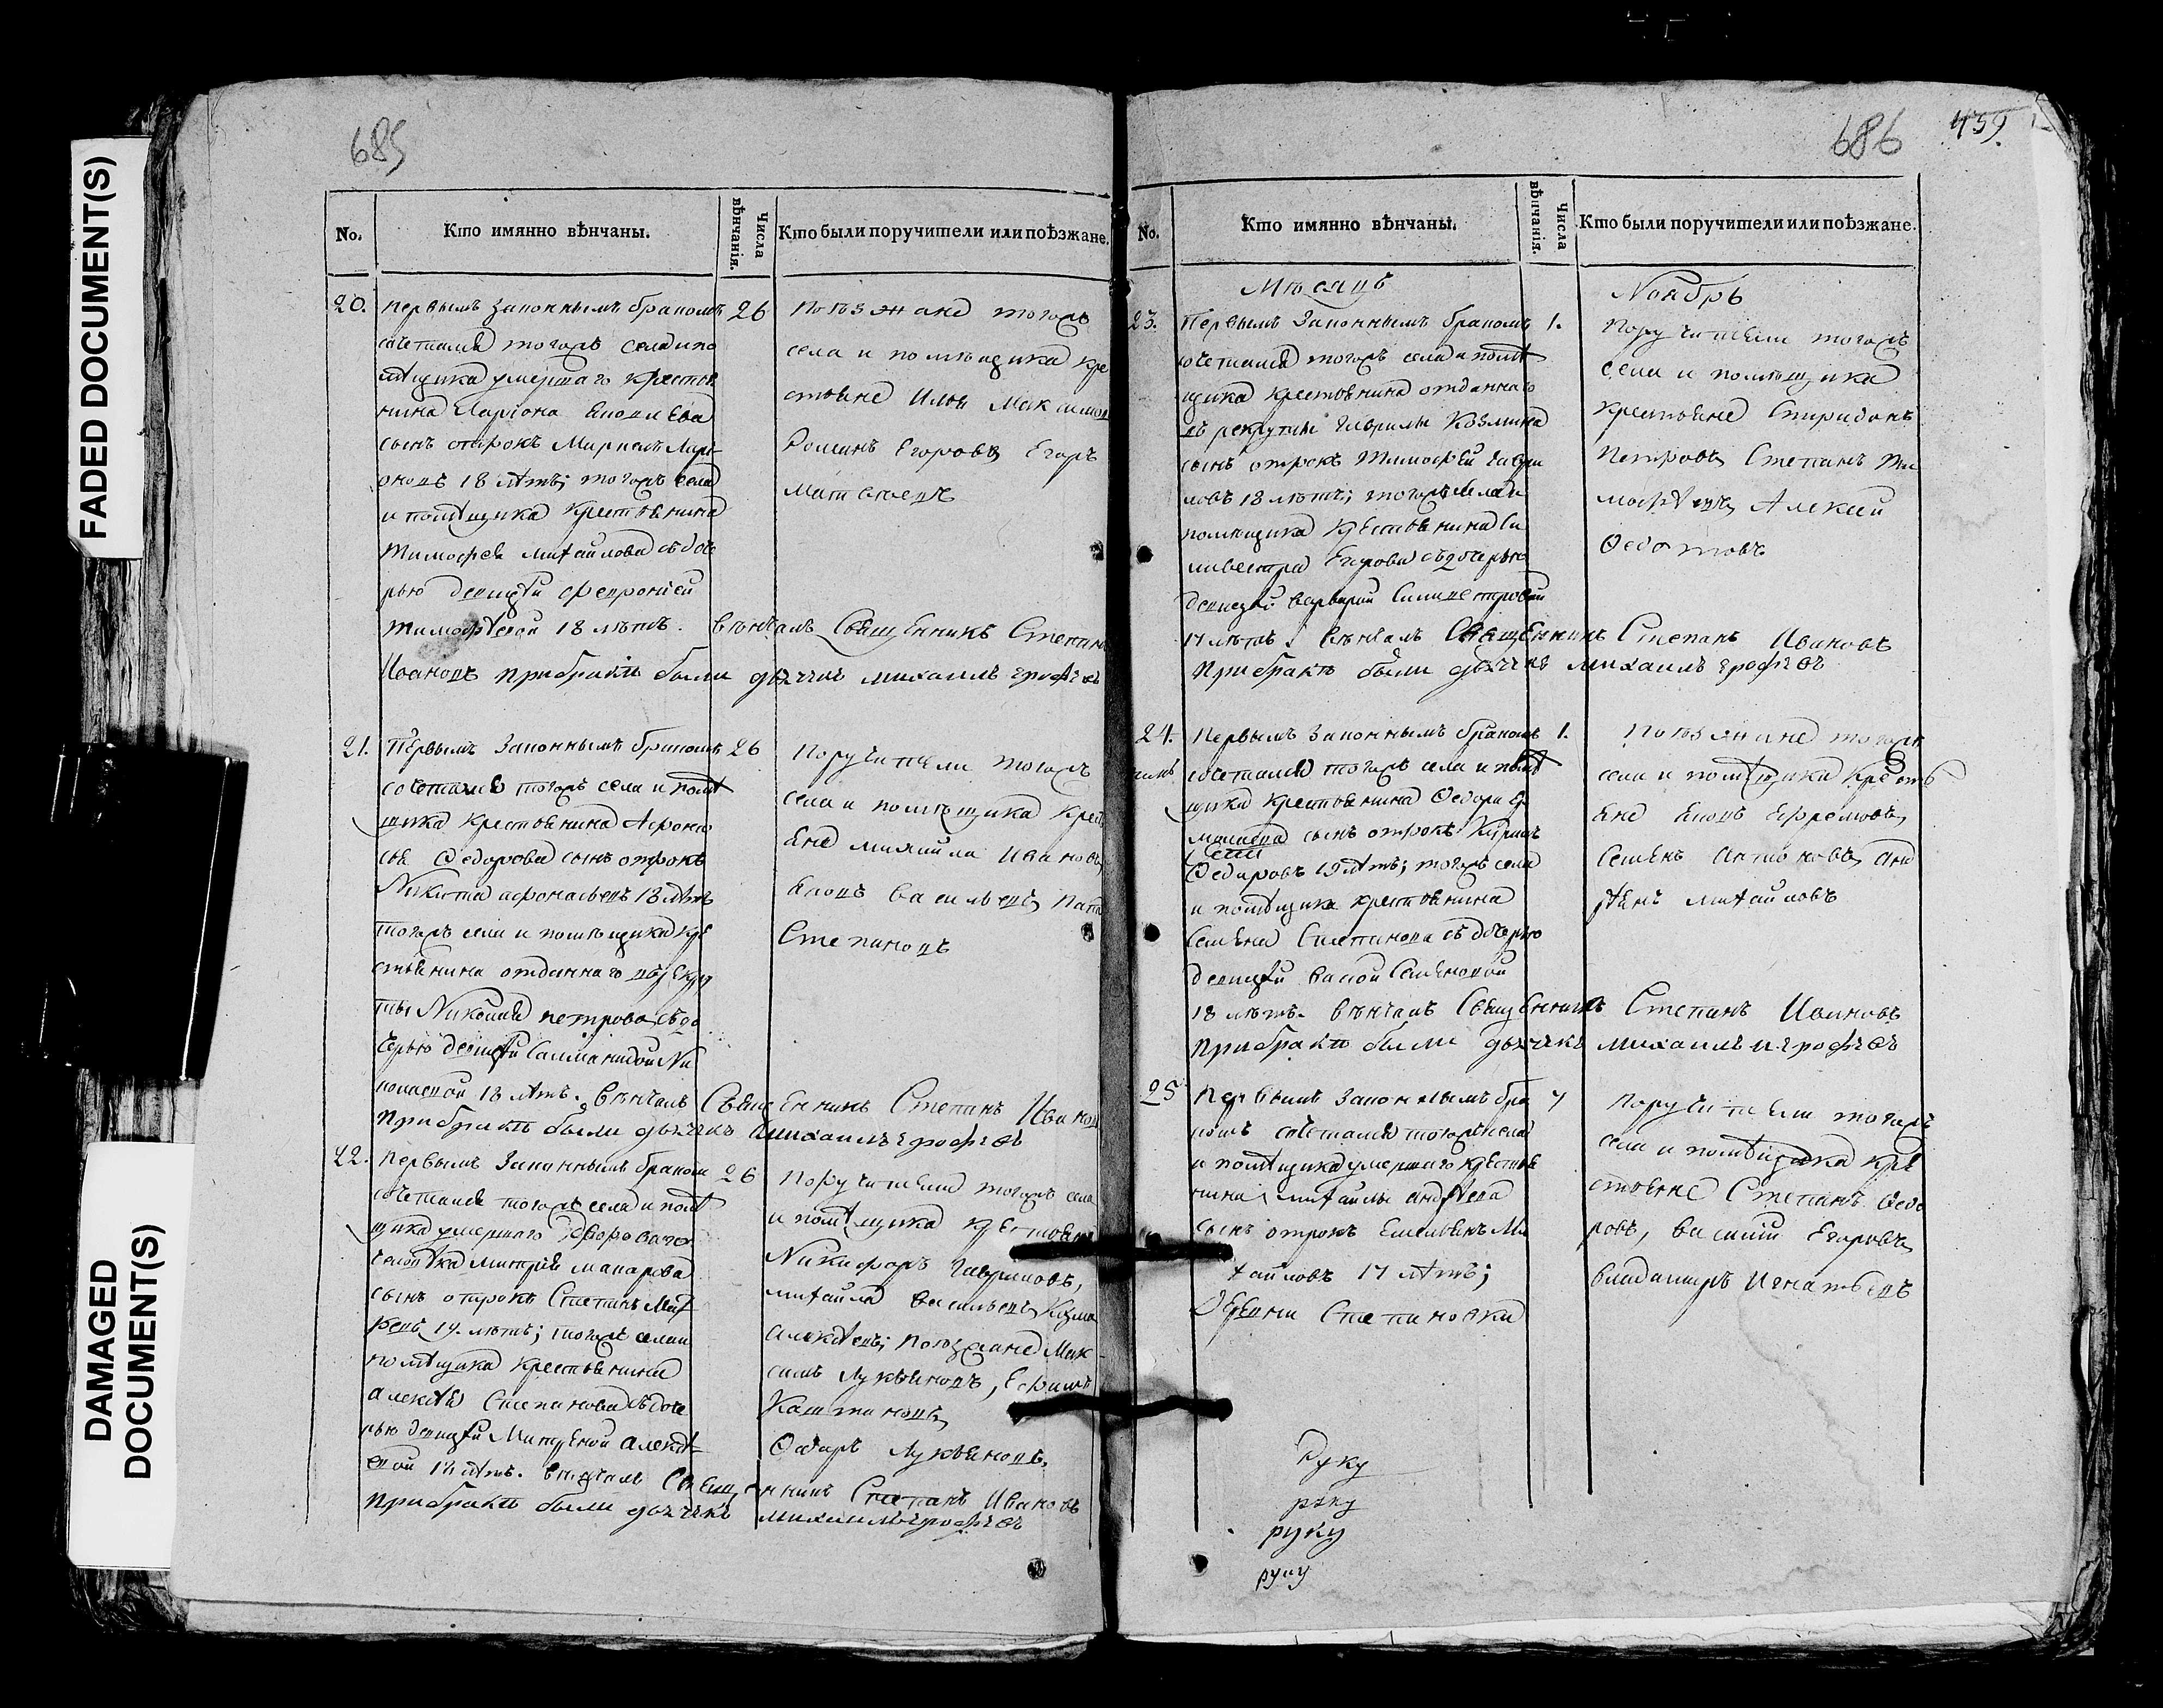 FADED DOCUMENT(S)
DAMAGED
DOCUMENT(S)
685
No.
Кто имянно вѣнчаны.
Числа
вѣнчанія.
Кто были поручители или поѣзжане.
20.
первымъ законнымъ бракомъ
сочетался тогожъ села и по
мѣщика умершаго крестья
нина Лариона
сынъ отрокъ Лари
оновъ 18 лѣтъ; тогожъ села
и помѣщика крестьянина
Тимофея Михайлова съ доче
рью девицѣй Февронией
Тимофѣевой 18 лѣтъ. вѣнчалъ Священникъ Степанъ
Ивановъ при бракѣ были дьячекъ Михаилъ Ерофѣевъ
26
Поѣзжане тогожъ
села и помѣщика кре
стьяне Илья Максимов
Романъ Егоровъ, Егоръ
Матвѣевъ
21.
Первымъ законнымъ бракомъ
сочетался тогожъ села и помѣ
щика крестьянина Афона
сья Федорова сынъ отрокъ
Никита Афонасьевъ 18 лѣтъ
тогожъ села и помѣщика кре
стьянина отданнаго въ рекру
ты Николая Петрова съ до
черью девицѣй Саломанидой Ни
колаевой 18 лѣтъ. Вѣнчалъ Священникъ Степанъ Иванов
При бракѣ были дьячекъ Михаилъ Ерофѣевъ
26
Поручители тогожъ
села и помѣщика крест
яне Михайла Ивановъ,
Яковъ Васильевъ,
Степановъ
22.
Первымъ Законнымъ браком
сочетался тогожъ села и помѣ
щика умершаго двороваго
человѣка Макарова
сынъ отрокъ Степанъ
лѣтъ; тогожъ села и
помѣщика крестьянина
Алексѣя Степанова съ доче
рью девицѣй Матреной Алексѣ
евой 18 лѣтъ. вѣнчалъ Священникъ Степанъ Ивановъ
При бракѣ были дьячекъ Михаилъ Ерофѣевъ
26
Поручители тогожъ села
и помѣщика крестьяне
Никифоръ Гавриловъ,
Михайла Васильевъ, Козма
Алексѣевъ; поѣзжане Мак
симъ Лукьяновъ, Ефимъ
Федоръ Лукьяновъ,
686
459
No.
Кто имянно вѣнчаны.
Числа
вѣнчанія.
Кто были поручители или поѣзжане.
Мѣсяцъ
Ноябрь
23.
Первымъ Законнымъ бракомъ
сочетался тогожъ села и помѣ
щика крестьянина отданнаго
въ рекруты Гаврилы Козмина
сынъ отрокъ Тимофей Гаври
ловъ 18 лѣтъ; тогожъ села и
помѣщика крестьянина Си
ливестра Егорова съ дочерью
девицѣй Варварой Силивестровой
17 лѣтъ. Вѣнчалъ Священникъ Степанъ Ивановъ
При бракѣ были дьячекъ Михаилъ Ерофѣевъ
1.
Поручители тогожъ
села и помѣщика
крестьяне Спиридонъ
Петровъ, Степанъ Ти
мофѣевъ, Алексей
Федотовъ
24.
Первымъ Законнымъ бракомъ
сочетался тогожъ села и помѣ
щика крестьянина Федора
сынъ отрокъ
Федоровъ 19 лѣтъ; тогожъ села
и помѣщика крестьянина
Семена Степанова съ дочерью
девицѣй Семеновой
18 лѣтъ. Вѣнчалъ Священникъ Степанъ Ивановъ
При бракѣ были дьячекъ Михаилъ Ерофѣевъ
1.
Поѣзжане тогожъ
села и помѣщика Кресть
яне Яковъ Ефремовъ,
Семенъ Антоновъ, Анд
рѣянъ Михайловъ
25
Первымъ Законнымъ бра
комъ сочетался тогожъ села
и помѣщика умершаго крестья
нина Михайлы Андрѣева
сынъ отрокъ Емельянъ Ми
хайловъ 17 лѣтъ;
Деревни Степановки
7
Поручители тогожъ
села и помѣщика кре
стьяне Степанъ Федо
ровъ, Василий Егоровъ,
Владимиръ Игнатьевъ
Руку
руку
руку
руку